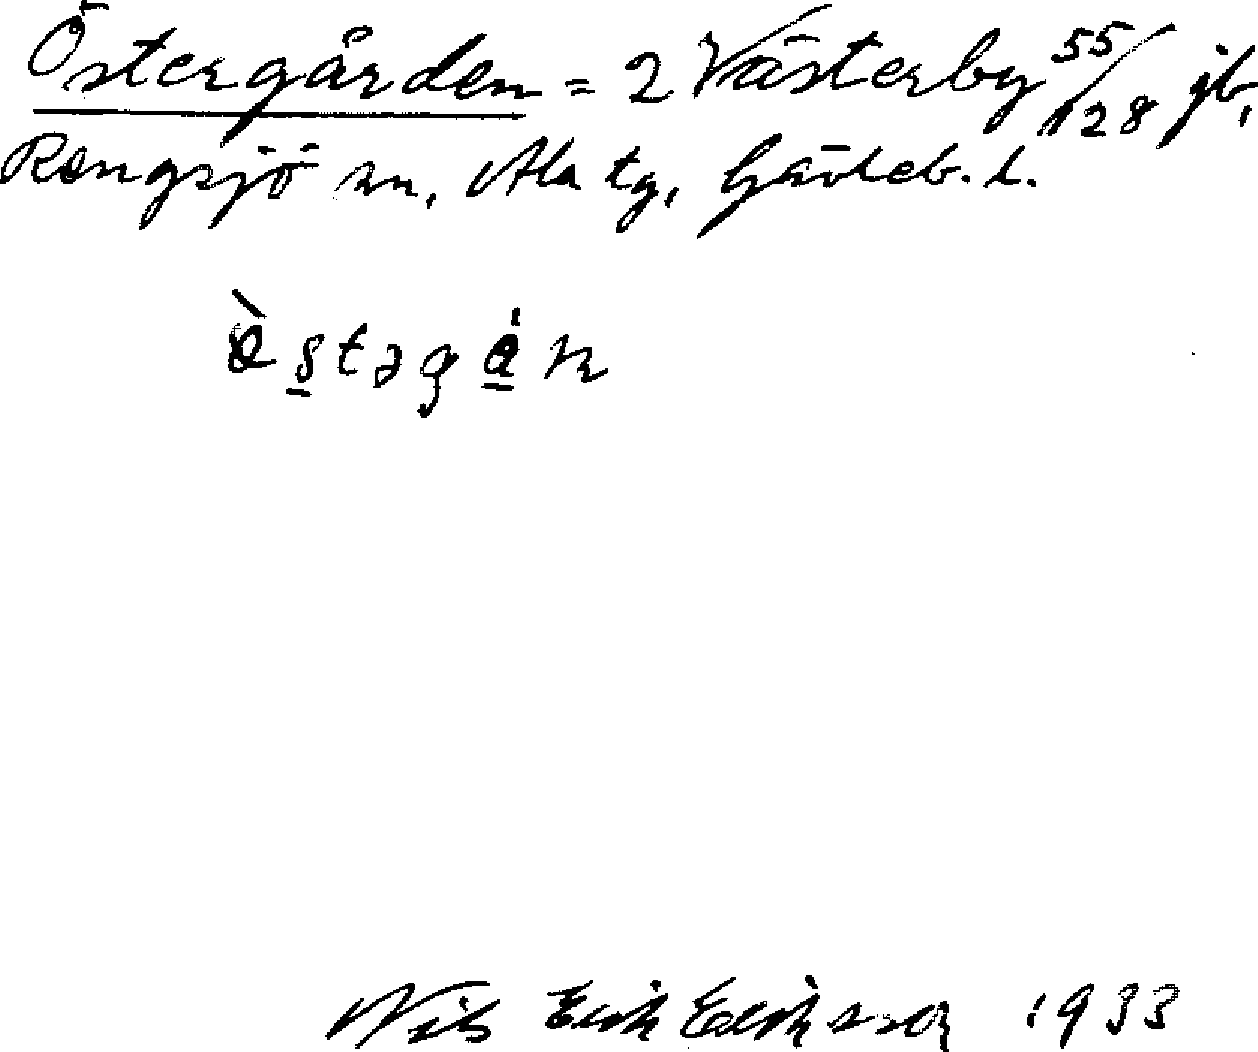 Östergården = 2 Västerby 55/128 jb,
Rengsjö sn, Ala tg, Gävleb. l.
Nils Erik Eriksson 1933